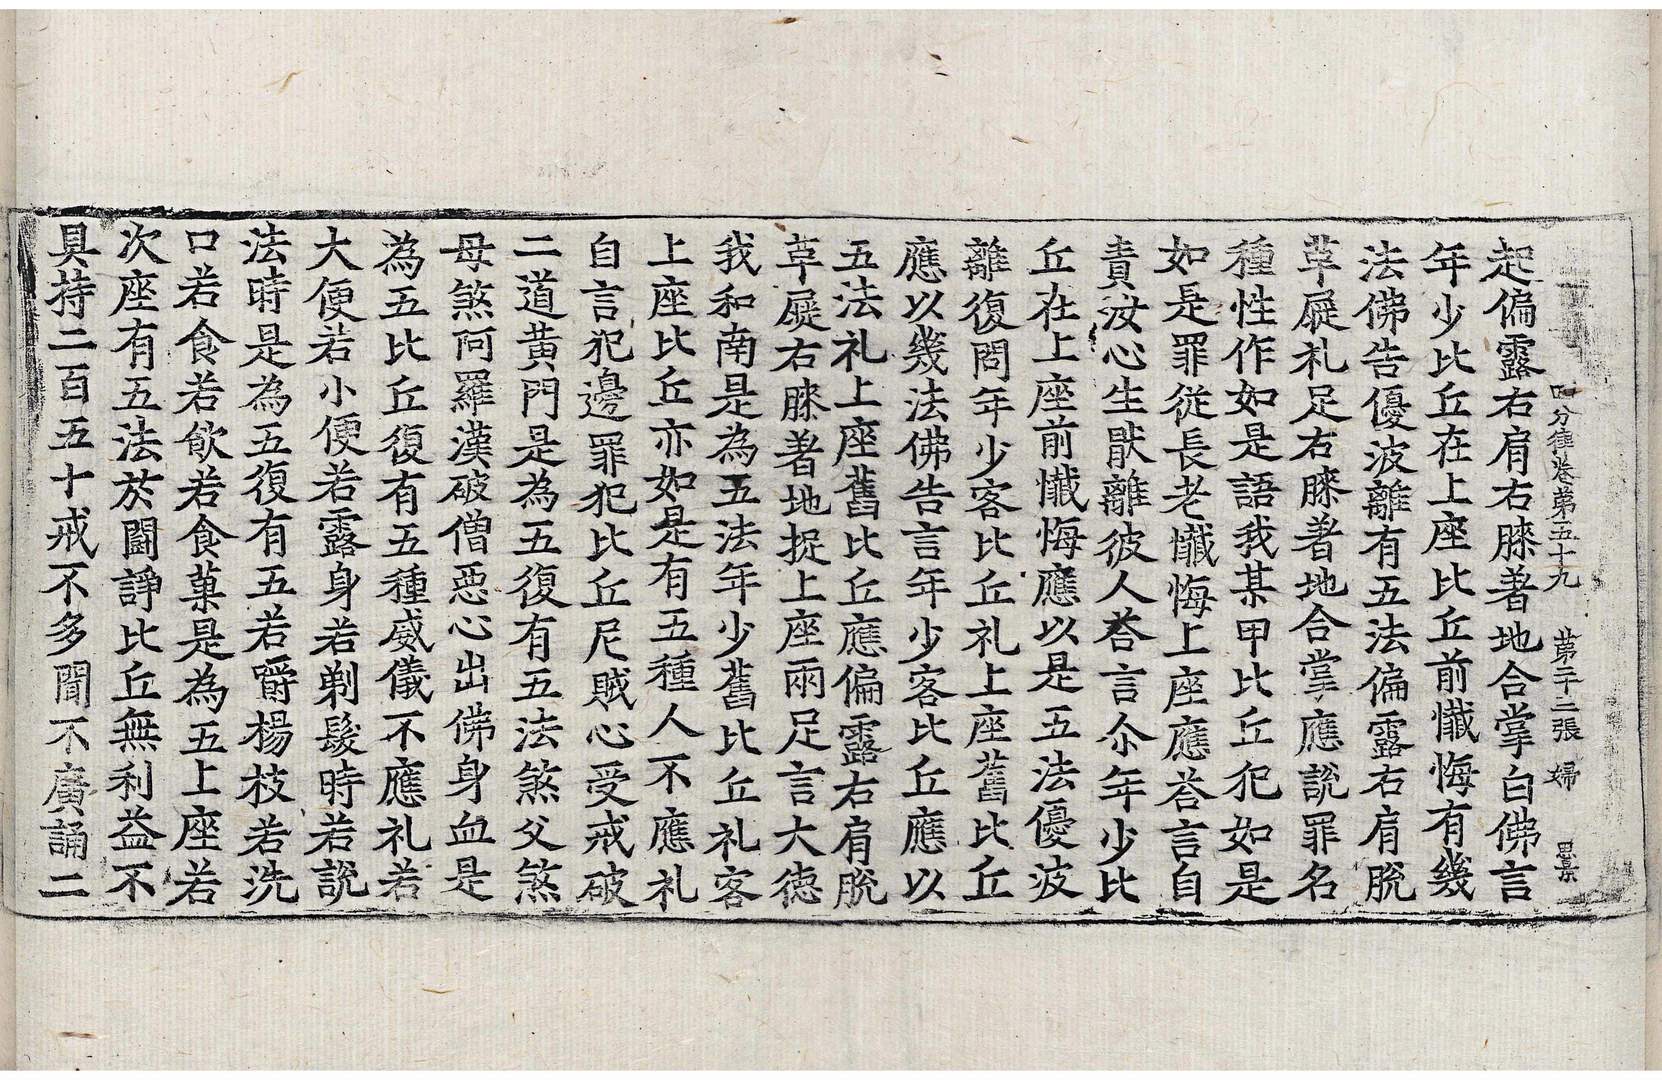 四分律卷第五十九 第二十二張 婦 思景
起偏露右肩右膝著地合掌白佛言
年少比丘在上座比丘前懺悔有幾
法佛告優波離有五法偏露右肩脫
革屣礼足右膝著地合掌應說罪名
種性作如是語我某甲比丘犯如是
如是罪從長老懺悔上座應荅言自
責汝心生猒離彼人荅言尒年少比
丘在上座前懺悔應以是五法優波
離復問年少客比丘礼上座舊比丘
應以幾法佛告言年少客比丘應以
五法礼上座舊比丘應偏露右肩脫
革屣右膝著地捉上座兩足言大德
我和南是為五法年少舊比丘礼客
上座比丘亦如是有五種人不應礼
自言犯邊罪犯比丘尼賊心受戒破
二道黃門是為五復有五法煞父煞
母煞阿羅漢破僧惡心出佛身血是
為五比丘復有五種威儀不應礼若
大便若小便若露身若剃髮時若說
法時是為五復有五若嚼楊枝若洗
口若食若飲若食菓是為五上座若
次座有五法於鬪諍比丘無利益不
具持二百五十戒不多聞不廣誦二